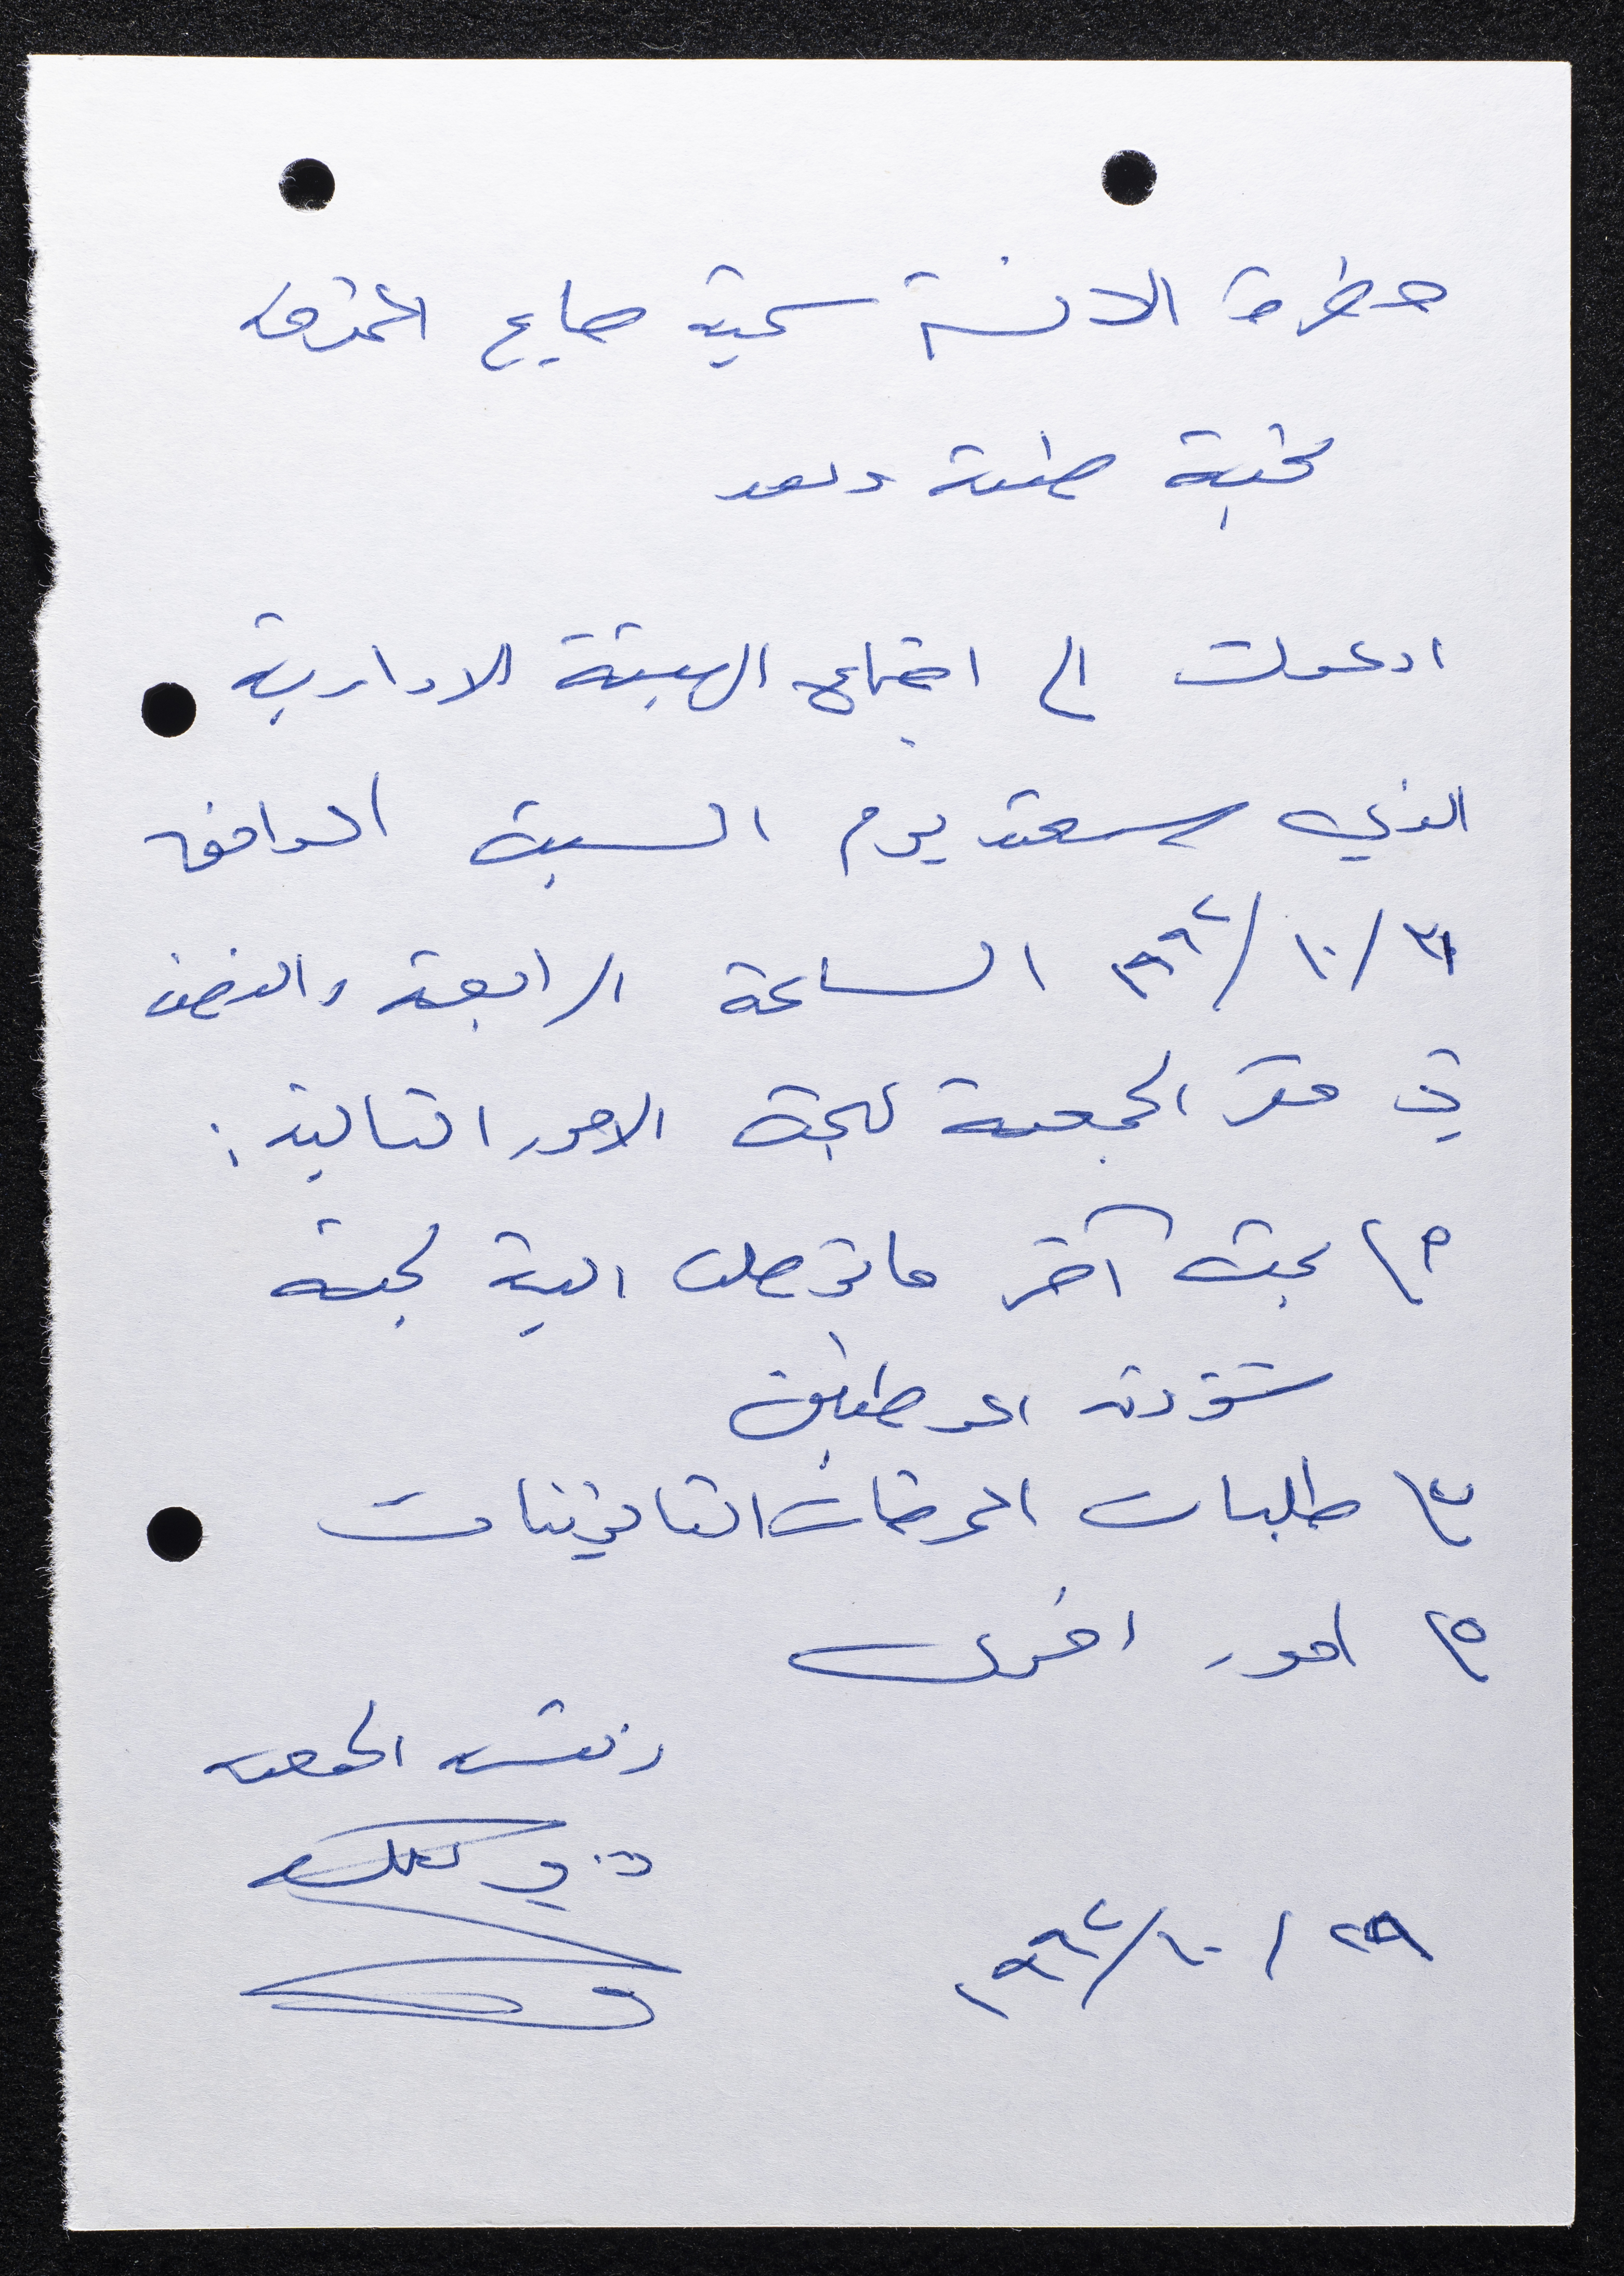 حضرة الانسة سمية صايغ المحترمة
تحية طيبة وبعد
ادعوك الى اجتماع الهيئة الادارية
الذي سيعقد يوم السبت الموافق
١٠/٣١/ ٩٩٢ الساعة الرابعة والنصف
في مقر الجمعية لبحث الامور التالية:
١) بحث آخر ما توصلت اليه لجنة
شؤون الموظفين
٢) طلبات الموظفات
٣) امور اخرى
رئيس الجمعية
٢٩/١٠/١٩٩٢